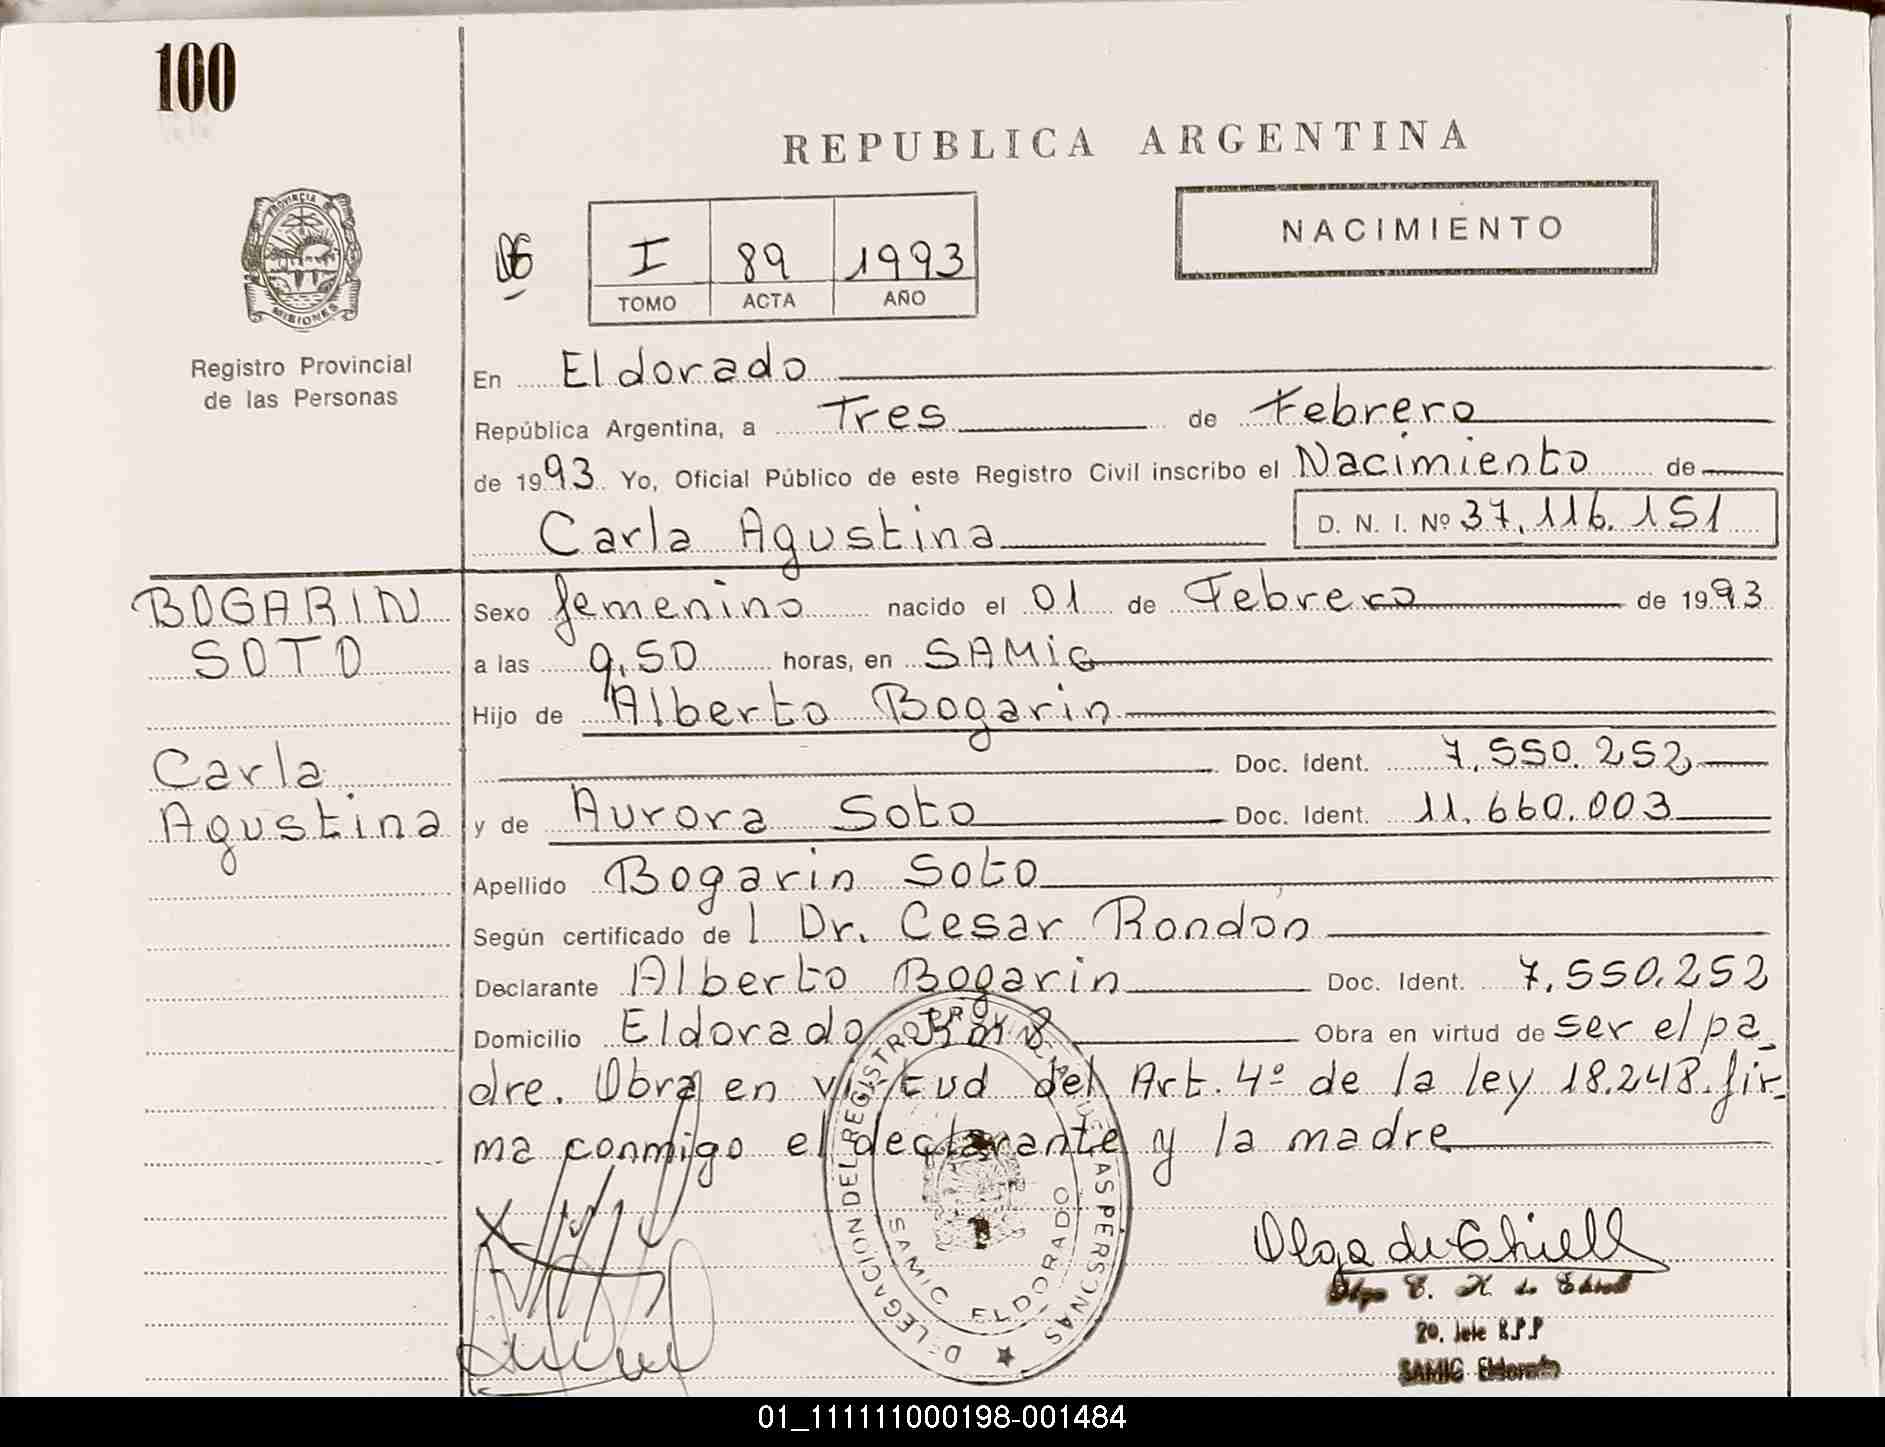 100
REPUBLICA ARGENTINA
PROVINCIA
MISIONES
Registro Provincial
de las Personas
06
I 89 1993
TOMO ACTA AÑO
NACIMIENTO
En Eldorado
República Argentina, a Tres de Febrero
de 1993 Yo, Oficial Público de este Registro Civil inscribo el Nacimiento de
Carla Agustina D. N. I. Nº 37.116.151
BOGARIN
SOTO
Carla
Agustina
Sexo femenino nacido el 01 de Febrero de 1993
a las 9,50 horas, en SAMiC
Hijo de Alberto Bogarin
Doc. Ident. 7.550.252
y de Aurora Soto Doc. Ident. 11.660.003
Apellido Bogarin Soto
Según certificado de l Dr. Cesar Rondón
Declarante Alberto Bogarin Doc. Ident. 7.550.252
Domicilio Eldorado Km 8 Obra en virtud de ser el pa_
dre. Obra en virtud del Art. 4º de la ley 18.248. fir-
ma conmigo el declarante y la madre
DELEGACION DEL REGISTRO PROVINCIAL DE LAS PERSONAS
SAMIC ELDORADO
Olga de Chiell
2º. Jefe R.P.P
SAMIC Eldorado
01_111111000198-001484